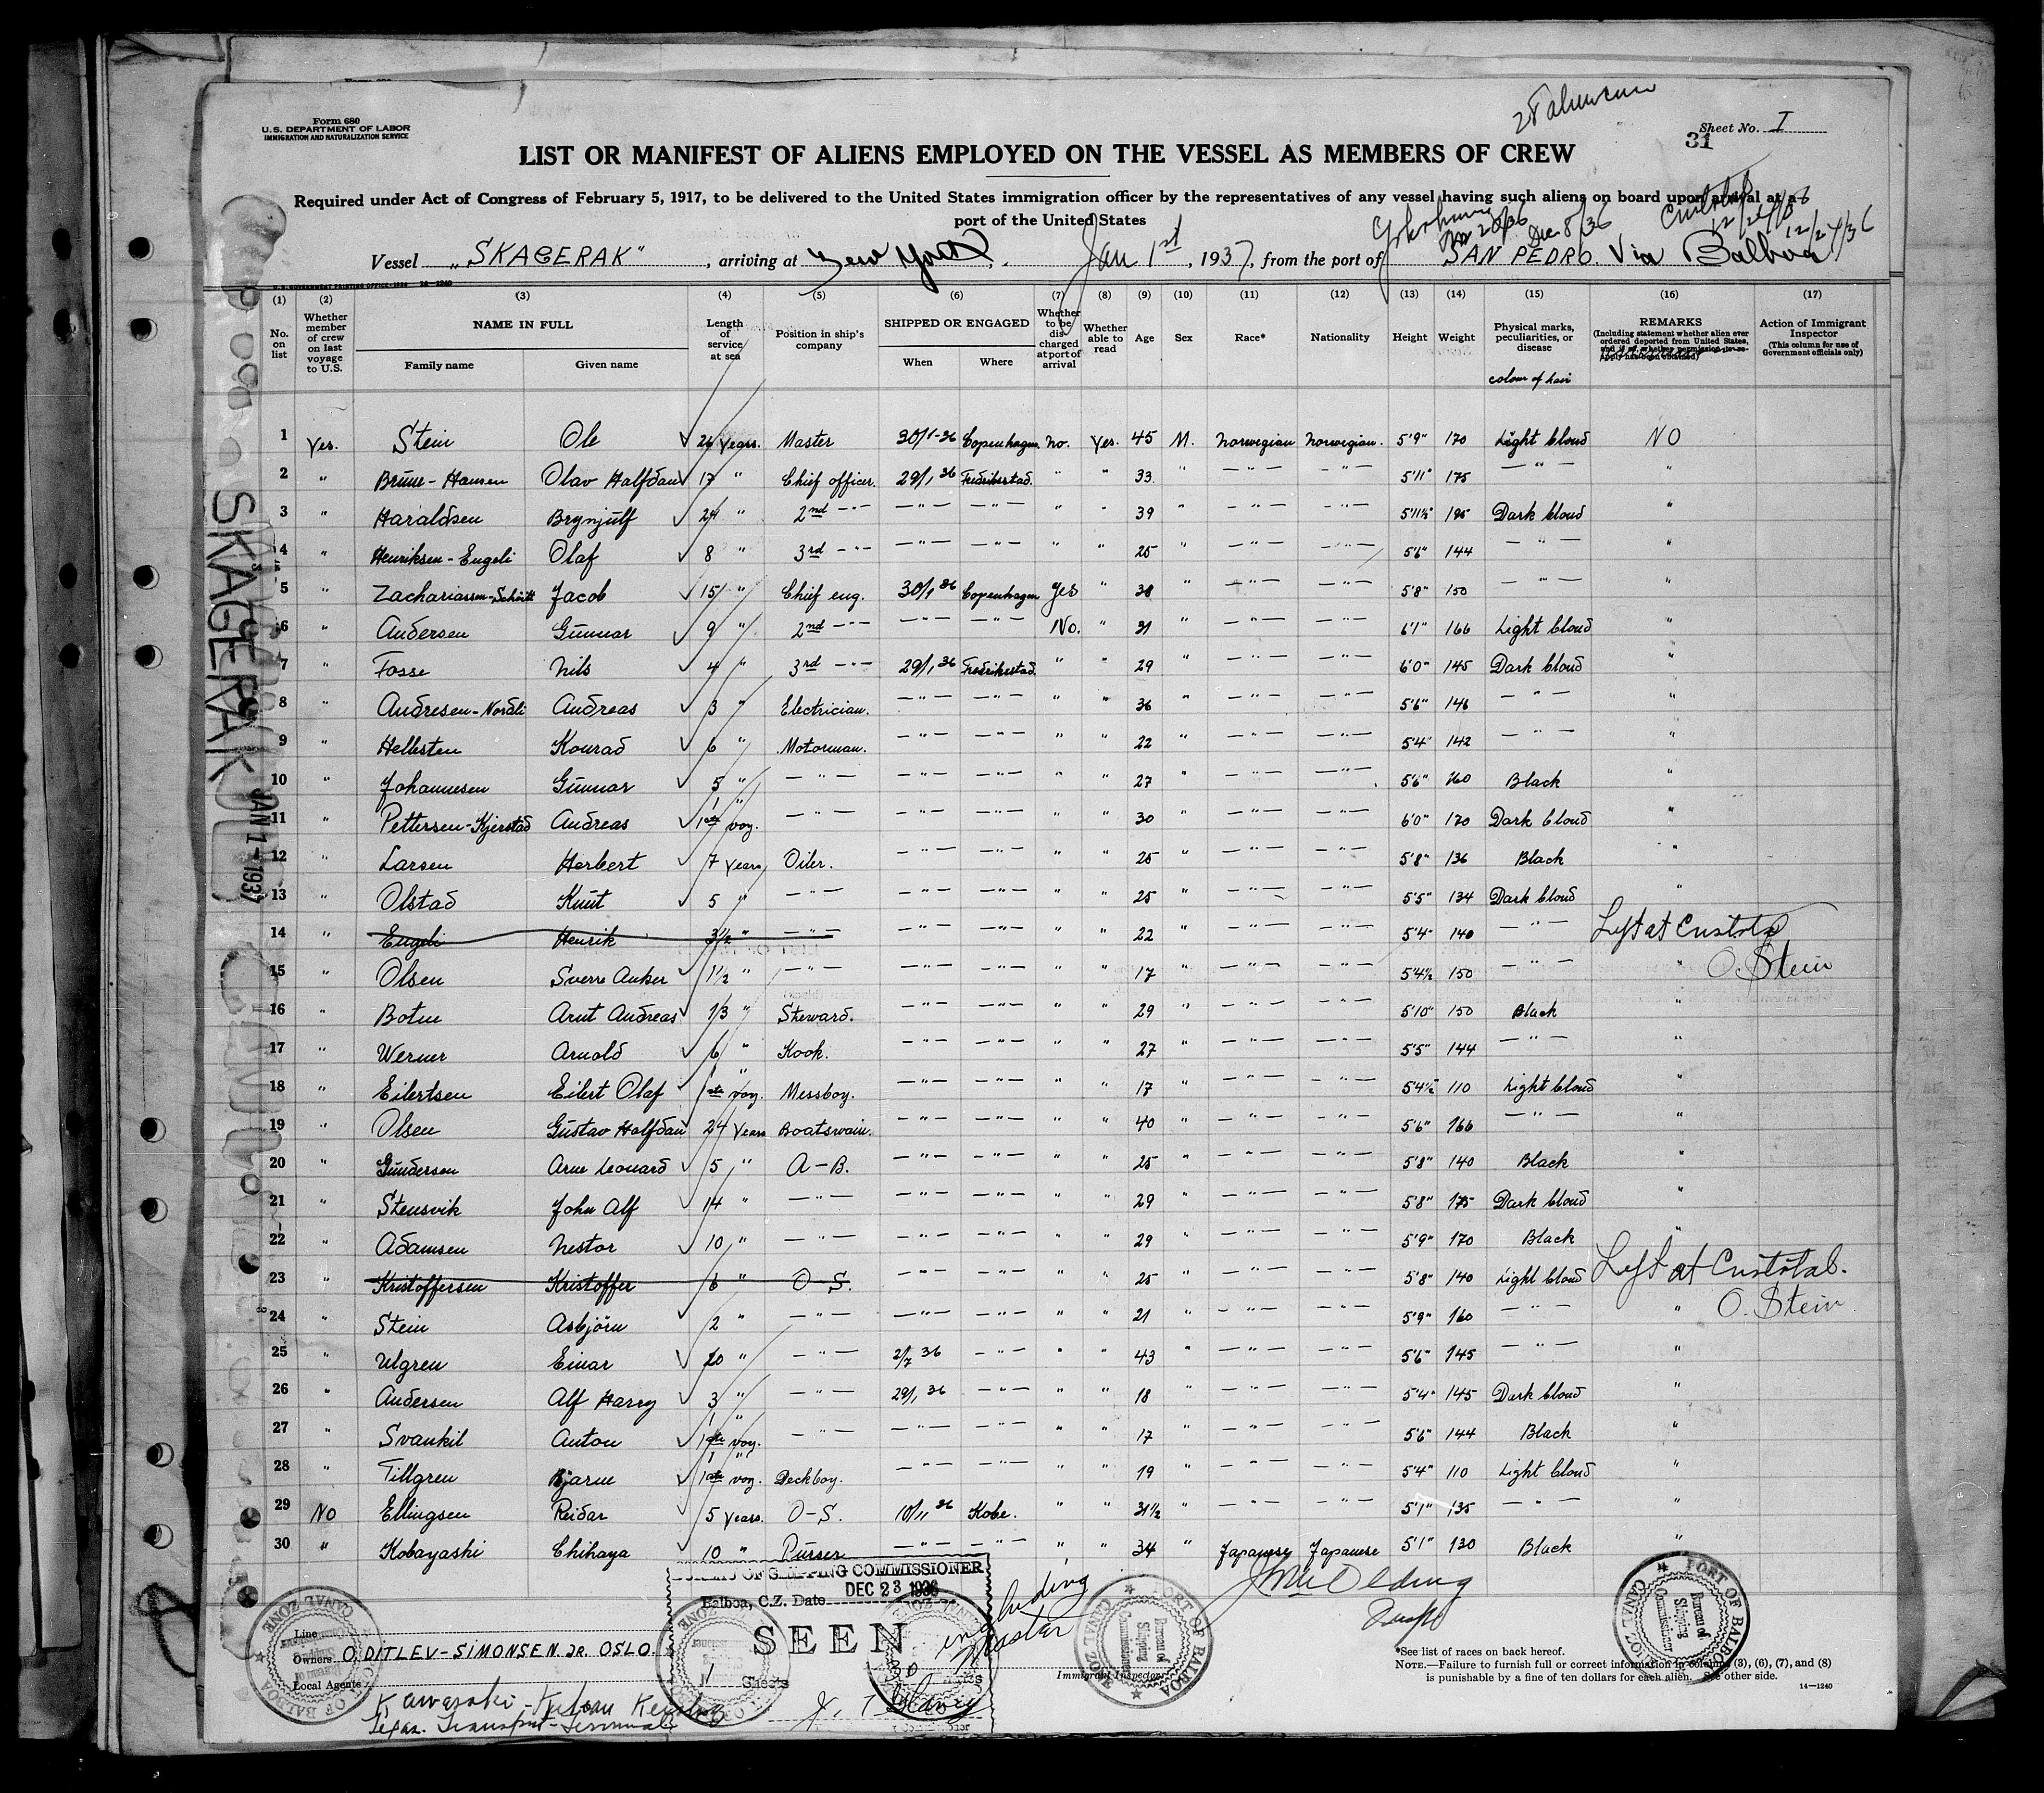 Form 680
U.S. DEPARTMENT OF LABOR
IMMIGRATION AND NATURALIZATION SERVICE
Sheet No. I
31
LIST OR MANIFEST OF ALIENS EMPLOYED ON THE VESSEL AS MEMBERS OF CREW
Required under Act of Congress of February 5, 1917, to be delivered to the United States immigration officer by the representatives of any vessel having such aliens on board upon arrival at a
port of the United States
Yokohama Nov 20/36 Dec 8/36 Cristobal 12/24/36 12/24/36
Vessel „SKAGERAK", arriving at New York, Jan 1st, 1937, from the port of SAN PEDRO. Via Balboa
(1) (2) (3) (4) (5) (6) (7) (8) (9) (10) (11) (12) (13) (14) (15) (16) (17)
No. on list
Whether member of crew on last voyage to U.S.
NAME IN FULL
Family name Given name
Length of service at sea
Position in ship's company
SHIPPED OR ENGAGED
When Where
Whether to be discharged at port of arrival
Whether able to read
Age
Sex
Race*
Nationality
Height
Weight
Physical marks, peculiarities, or disease
colour of hair
REMARKS
(Including statement whether alien ever ordered deported from United States, and if so, whether permission to reapply has been obtained)
Action of Immigrant Inspector
(This column for use of Government officials only)
1 Yes. Stein Ole 26 years. Master 30/1-36 Copenhagen. no. Yes. 45 M. Norwegian Norwegian. 5'9" 170 Light blond NO
2 " Bruun-Hansen Olav Halfdan 17 " Chief officer. 29/1 36 Fredrikstad. " " 33 " — " — — " — 5'11" 175 — " — "
3 " Haraldsen Brynjulf 24 " 2nd — " — — " — — " — " " 39 " — " — — " — 5'11½ 185 Dark blond "
4 " Henriksen-Engeli Olaf 8 " 3rd — " — — " — — " — " " 25 " — " — — " — 5'6" 144 — " — "
5 " Zachariassen-Schött Jacob 15 " Chief eng. 30/1 36 Copenhagen Yes " 38 " — " — — " — 5'8" 150 — " —
6 " Andersen Gunnar 9 " 2nd — " — — " — — " — No. " 31 " — " — — " — 6'1" 166 Light blond "
7 " Fosse Nils 4 " 3rd — " — 29/1 36 Fredrikstad. " " 29 " — " — — " — 6'0" 145 Dark blond "
8 " Andresen-Nordli Andreas 3 " Electrician. — " — — " — " " 36 " — " — — " — 5'6" 146 — " — "
9 " Hellesten Konrad 6 " Motorman. — " — — " — " " 22 " — " — — " — 5'4" 142 — " — "
10 " Johannesen Gunnar 5 " — " — — " — — " — " " 27 " — " — — " — 5'6" 160 Black "
11 " Pettersen-Kjerstad Andreas 1ste voy. — " — — " — — " — " " 30 " — " — — " — 6'0" 170 Dark blond "
12 " Larsen Herbert 7 years Oiler. — " — — " — " " 25 " — " — — " — 5'8" 136 Black "
13 " Olstad Knut 5 " — " — — " — — " — " " 25 " — " — — " — 5'5" 134 Dark blond "
14 " Engeli Henrik 3½ " — " — — " — — " — " " 22 " — " — — " — 5'4" 140 — " — Left at Cristobal
15 " Olsen Sverre Anker 1½ " — " — — " — — " — " " 17 " — " — — " — 5'4½ 150 — " — " O. Stein
16 " Botne Arnt Andreas 1/3 " Steward. — " — — " — " " 29 " — " — — " — 5'10" 150 Black "
17 " Werner Arnold 6 " Kook. — " — — " — " " 27 " — " — — " — 5'5" 144 — " — "
18 " Eilertsen Eilert Olaf 1ste voy. Messboy. — " — — " — " " 17 " — " — — " — 5'4½" 110 Light blond "
19 " Olsen Gustav Halfdan 24 years Boatswain. — " — — " — " " 40 " — " — — " — 5'6" 166 — " — "
20 " Gundersen Arne Leonard 5 " A-B. — " — — " — " " 25 " — " — — " — 5'8" 140 Black "
21 " Stensvik John Alf 14 " — " — — " — — " — " " 29 " — " — — " — 5'8" 175 Dark blond "
22 " Adamsen Nestor 10 " — " — — " — — " — " " 29 " — " — — " — 5'9" 170 Black "
23 " Kristoffersen Kristoffer 6 " O-S. — " — — " — " " 25 " — " — — " — 5'8" 140 Light blond Left at Cristobal.
24 " Stein Asbjörn 2 " — " — — " — — " — " " 21 " — " — — " — 5'9" 160 — " — " O. Stein
25 " Ulgren Einar 20 " — " — 2/7 36 — " — " " 43 " — " — — " — 5'6" 145 — " — "
26 " Andersen Alf Harry 3 " — " — 29/1 36 — " — " " 18 " — " — — " — 5'4" 145 Dark blond "
27 " Svankil Anton 1ste voy. — " — — " — — " — " " 17 " — " — — " — 5'6" 144 Black "
28 " Tillgren Bjarne 1ste voy. Deckboy. — " — — " — " " 19 " — " — — " — 5'4" 110 Light blond "
29 NO Ellingsen Reidar 5 years. O-S. 10/11 36 Kobe. " " 31½ " — " — — " — 5'1" 135 — " — "
30 " Kobayashi Chihaya 10 " Purser — " — — " — " " 34 " Japanese Japanese 5'1" 130 Black "
SKAGERAK
JAN 1 - 1937
BUREAU OF SHIPPING COMMISSIONER
Balboa, C.Z. Date DEC 23 1936
SEEN
1 Sheets
30
including
Master
PORT OF BALBOA
CANAL ZONE
Bureau of Shipping Commissioner
Line
Owners O. DITLEV-SIMONSEN JR. OSLO.
Local Agents
Kawasaki-Kisen
Texas Transport-Terminal
Immigrant Inspector
*See list of races on back hereof.
NOTE.—Failure to furnish full or correct information in columns (3), (6), (7), and (8)
is punishable by a fine of ten dollars for each alien. See other side.
14—1240